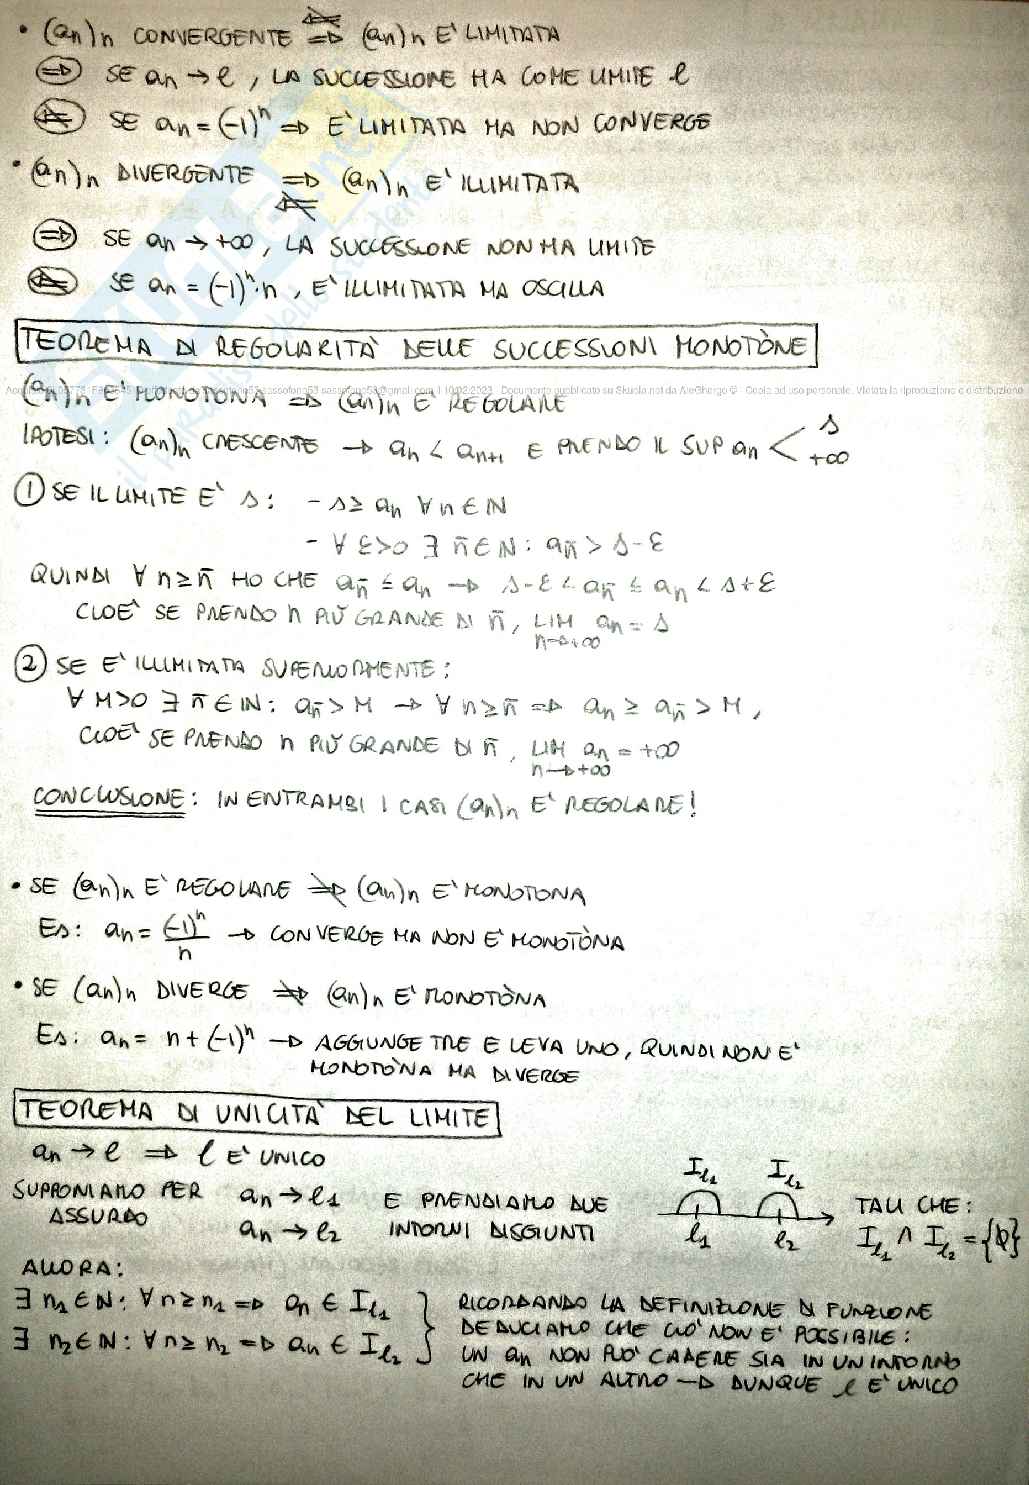 • (an)n CONVERGENTE ⇍⇒ (an)n E' LIMITATA
⇒ SE an → l, LA SUCCESSIONE HA COME LIMITE l
⇍ SE an = (-1)^n ⇒ E' LIMITATA MA NON CONVERGE
• (an)n DIVERGENTE ⇒ (an)n E' ILLIMITATA
⇍
⇒ SE an → +∞, LA SUCCESSIONE NON HA LIMITE
⇍ SE an = (-1)^n·n, E' ILLIMITATA MA OSCILLA
TEOREMA DI REGOLARITÀ DELLE SUCCESSIONI MONOTÒNE
(an)n E' MONOTONA ⇒ (an)n E' REGOLARE
Documento pubblicato su Skuola.net da AleGhergo © - Copia ad uso personale. Vietata la riproduzione e distribuzione
IPOTESI: (an)n CRESCENTE → an < an+1 E PRENDO IL SUP an < s +∞
① SE IL LIMITE E' s: - s ≥ an ∀ n ∈ N
- ∀ ε>0 ∃ n̄ ∈ N: an̄ > s-ε
QUINDI ∀ n ≥ n̄ HO CHE an̄ ≤ an → s-ε < an̄ ≤ an < s+ε
CIOE' SE PRENDO n PIÙ GRANDE DI n̄, LIM an = s
n→+∞
② SE E' ILLIMITATA SUPERIORMENTE:
∀ M>0 ∃ n̄ ∈ N: an̄ > M → ∀ n ≥ n̄ ⇒ an ≥ an̄ > M,
CIOE' SE PRENDO n PIÙ GRANDE DI n̄, LIM an = +∞
n→+∞
CONCLUSIONE: IN ENTRAMBI I CASI (an)n E' REGOLARE!
• SE (an)n E' REGOLARE ⇏ (an)n E' MONOTONA
Es: an = (-1)^n/n → CONVERGE MA NON E' MONOTÒNA
• SE (an)n DIVERGE ⇏ (an)n E' MONOTÒNA
Es: an = n + (-1)^n → AGGIUNGE TRE E LEVA UNO, QUINDI NON E'
MONOTÒNA MA DIVERGE
TEOREMA DI UNICITA' DEL LIMITE
an → l ⇒ l E' UNICO
SUPPONIAMO PER ASSURDO
an → l1
an → l2
E PRENDIAMO DUE INTORNI DISGIUNTI
Il1 Il2
l1 l2
TALI CHE:
Il1 ∧ Il2 = {∅}
ALLORA:
∃ n1 ∈ N: ∀ n ≥ n1 ⇒ an ∈ Il1
∃ n2 ∈ N: ∀ n ≥ n2 ⇒ an ∈ Il2
RICORDANDO LA DEFINIZIONE DI FUNZIONE
DEDUCIAMO CHE CIO' NON E' POSSIBILE:
UN an NON PUO' CADERE SIA IN UN INTORNO
CHE IN UN ALTRO → DUNQUE l E' UNICO